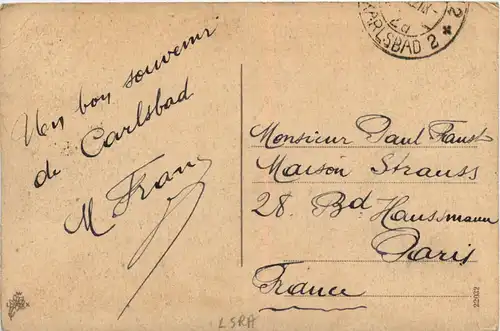 Un bon souvenir
de Carlsbad
M Franz
KARLSBAD 2 ✶
2a
2
Monsieur Paul Faust
Maison Strauss
28. Bd. Haussmann
Paris
France
22022
LSRA